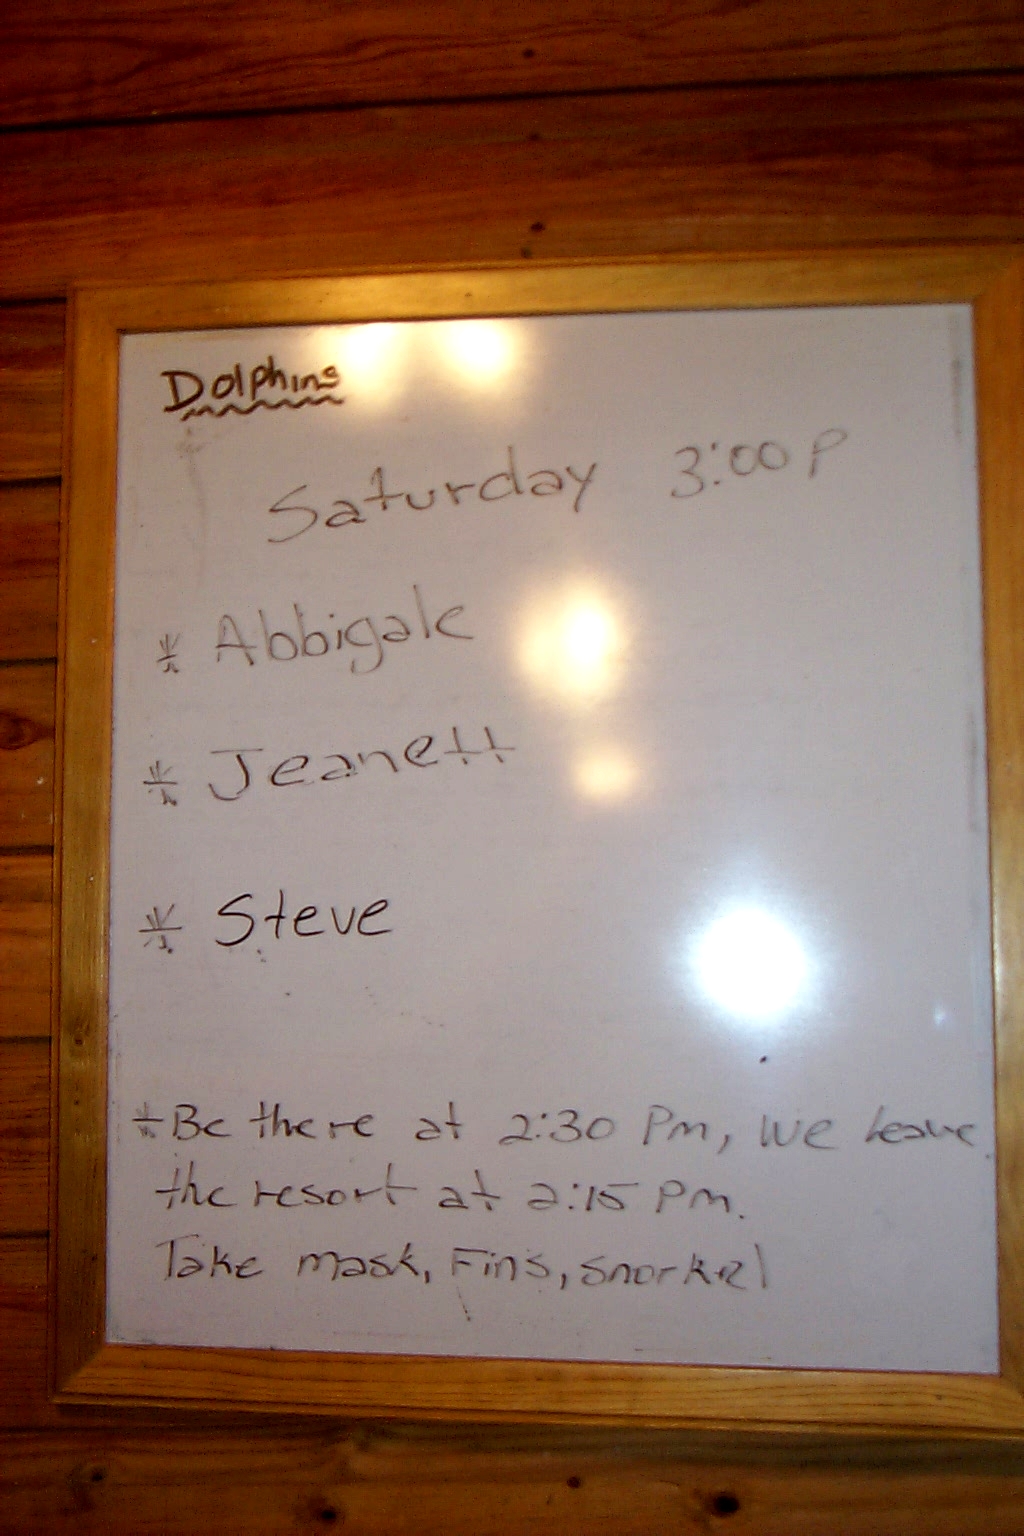 Dolphins
Saturday 3:00 P
* Abbigale
* Jeanett
* Steve
* Be there at 2:30 Pm, We leave
the resort at 2:15 Pm.
Take mask, Fins, snorkel